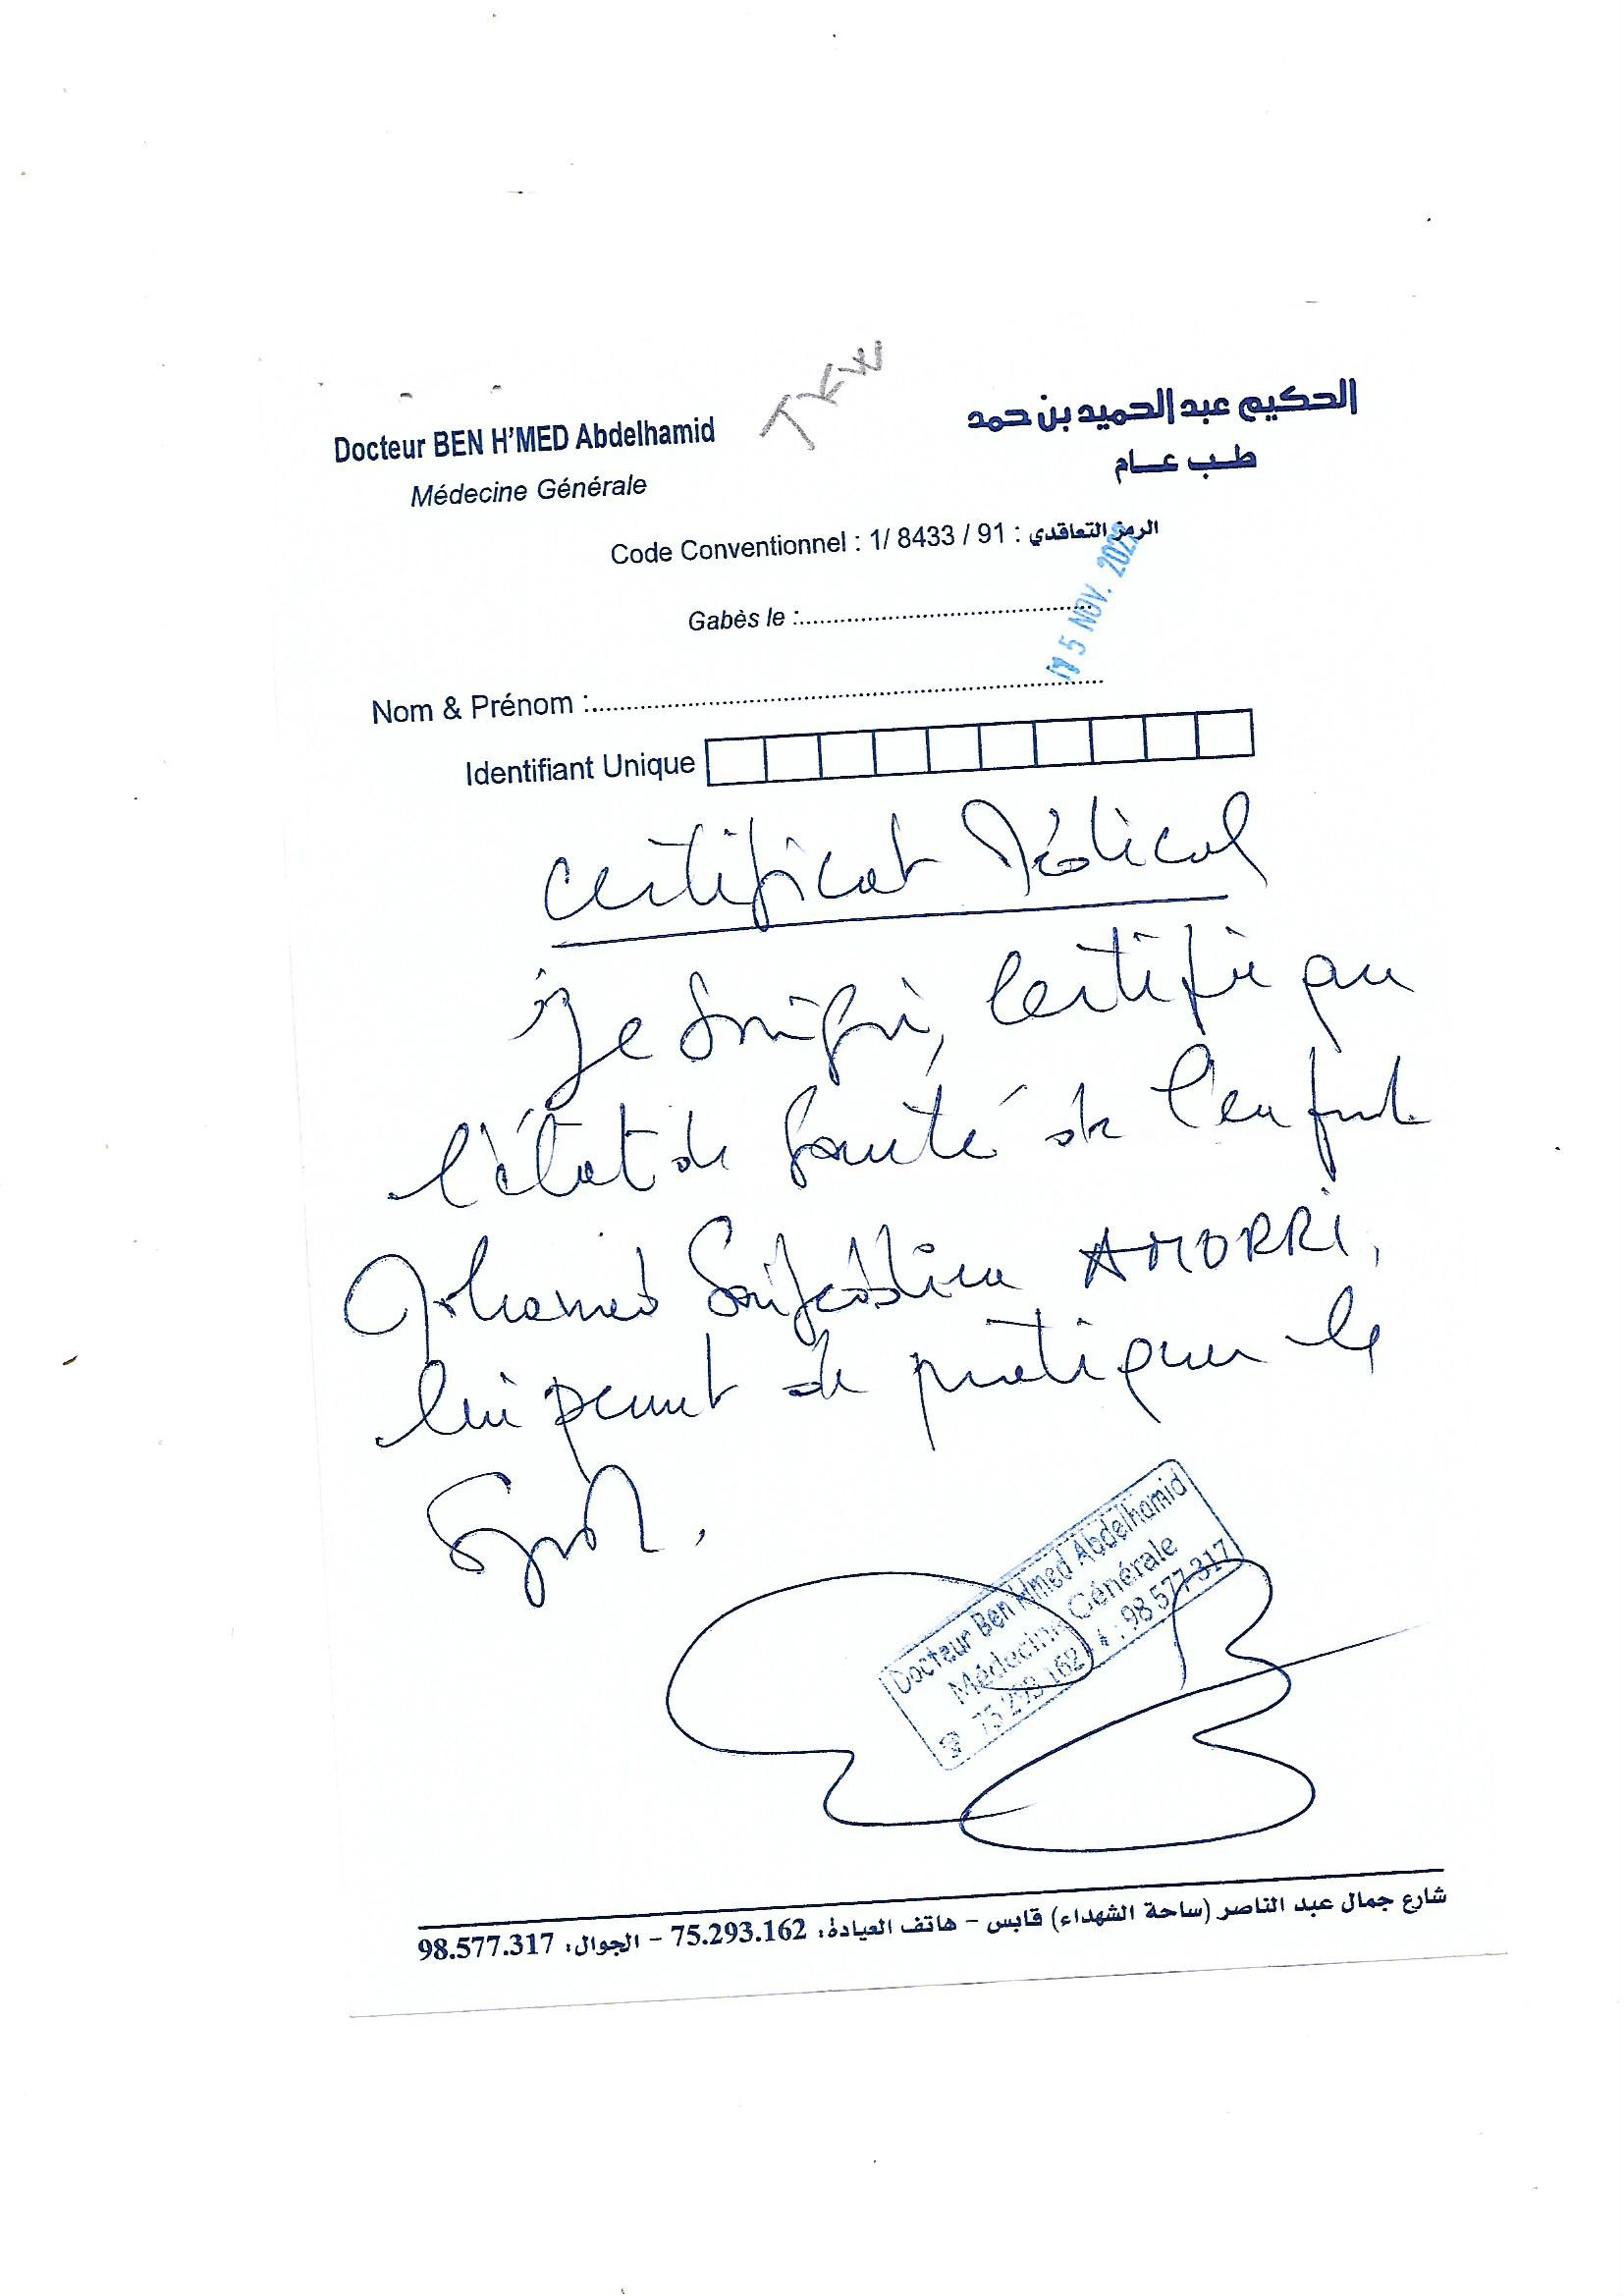 TKW
Docteur BEN H'MED Abdelhamid
Médecine Générale
الحكيم عبد الحميد بن حمد
طب عام
Code Conventionnel : 1/ 8433 / 91 : الرمز التعاقدي
Gabès le :
5 NOV. 202
Nom & Prénom :
Identifiant Unique
Certificat Médical
Je soussigné, certifie que
l'état de santé de l'enfant
Mohamed Saifeddine AMORRI,
lui permet de pratiquer le
Sport.
Docteur Ben Hmed Abdelhamid
Médecine Générale
75 293 162 - : 98 577 317
شارع جمال عبد الناصر (ساحة الشهداء) قابس - هاتف العيادة: 75.293.162 - الجوال: 98.577.317